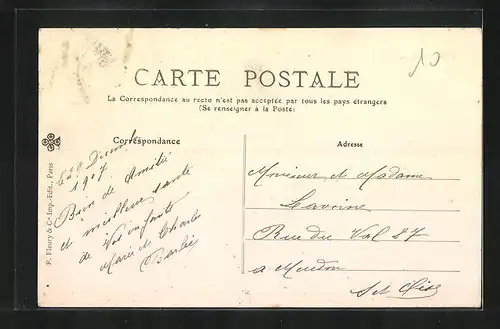 10
CARTE POSTALE
La Correspondance au recto n'est pas acceptée par tous les pays étrangers
(Se renseigner à la Poste)
Correspondance
Adresse
F. Fleury & Cie Imp.-Edit., Paris
1907
Bien de Amitié
et meilleur santé
de Vos enfants
Marie et Charles
Monsieur et Madame
Lavoine
Rue du Val 87
a Meudon
S et Oise